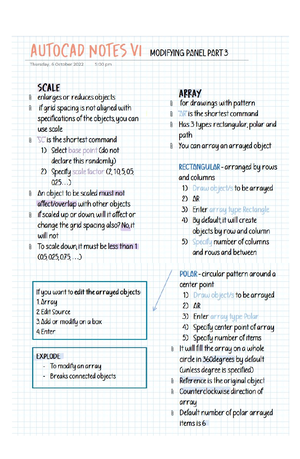 AUTOCAD NOTES VI MODIFYING PANEL PART 3
Thursday, 6 October 2022 5:00 pm
SCALE
enlarges or reduces objects
if grid spacing is not aligned with
specifications of the objects, you can
use scale
"SC" is the shortest command
1) Select base point (do not
declare this randomly)
2) Specify scale factor (2, 10, 5, 0.5,
0.25....)
An object to be scaled must not
affect/overlap with other objects
if scaled up or down, will it affect or
change the grid spacing also? No, it
will not
To scale down, it must be less than 1
(0.5, 0.25, 0.75, ....)
If you want to edit the arrayed objects:
1. Array
2. Edit Source
3. Add or modify on a box
4. Enter
EXPLODE:
- To modify an array
- Breaks connected objects
ARRAY
for drawings with pattern
"AR" is the shortest command
Has 3 types: rectangular, polar and
path
You can array an arrayed object
RECTANGULAR - arranged by rows
and columns
1) Draw object/s to be arrayed
2) AR
3) Enter array type: Rectangle
4) By default, it will create
objects by row and column
5) Specify number of columns
and rows and between
POLAR - circular pattern around a
center point
1) Draw object/s to be arrayed
2) AR
3) Enter array type: Polar
4) Specify center point of array
5) Specify number of items
It will fill the array on a whole
circle in 360degrees by default
(unless degree is specified)
Reference is the original object
Counterclockwise direction of
array
Default number of polar arrayed
items is 6